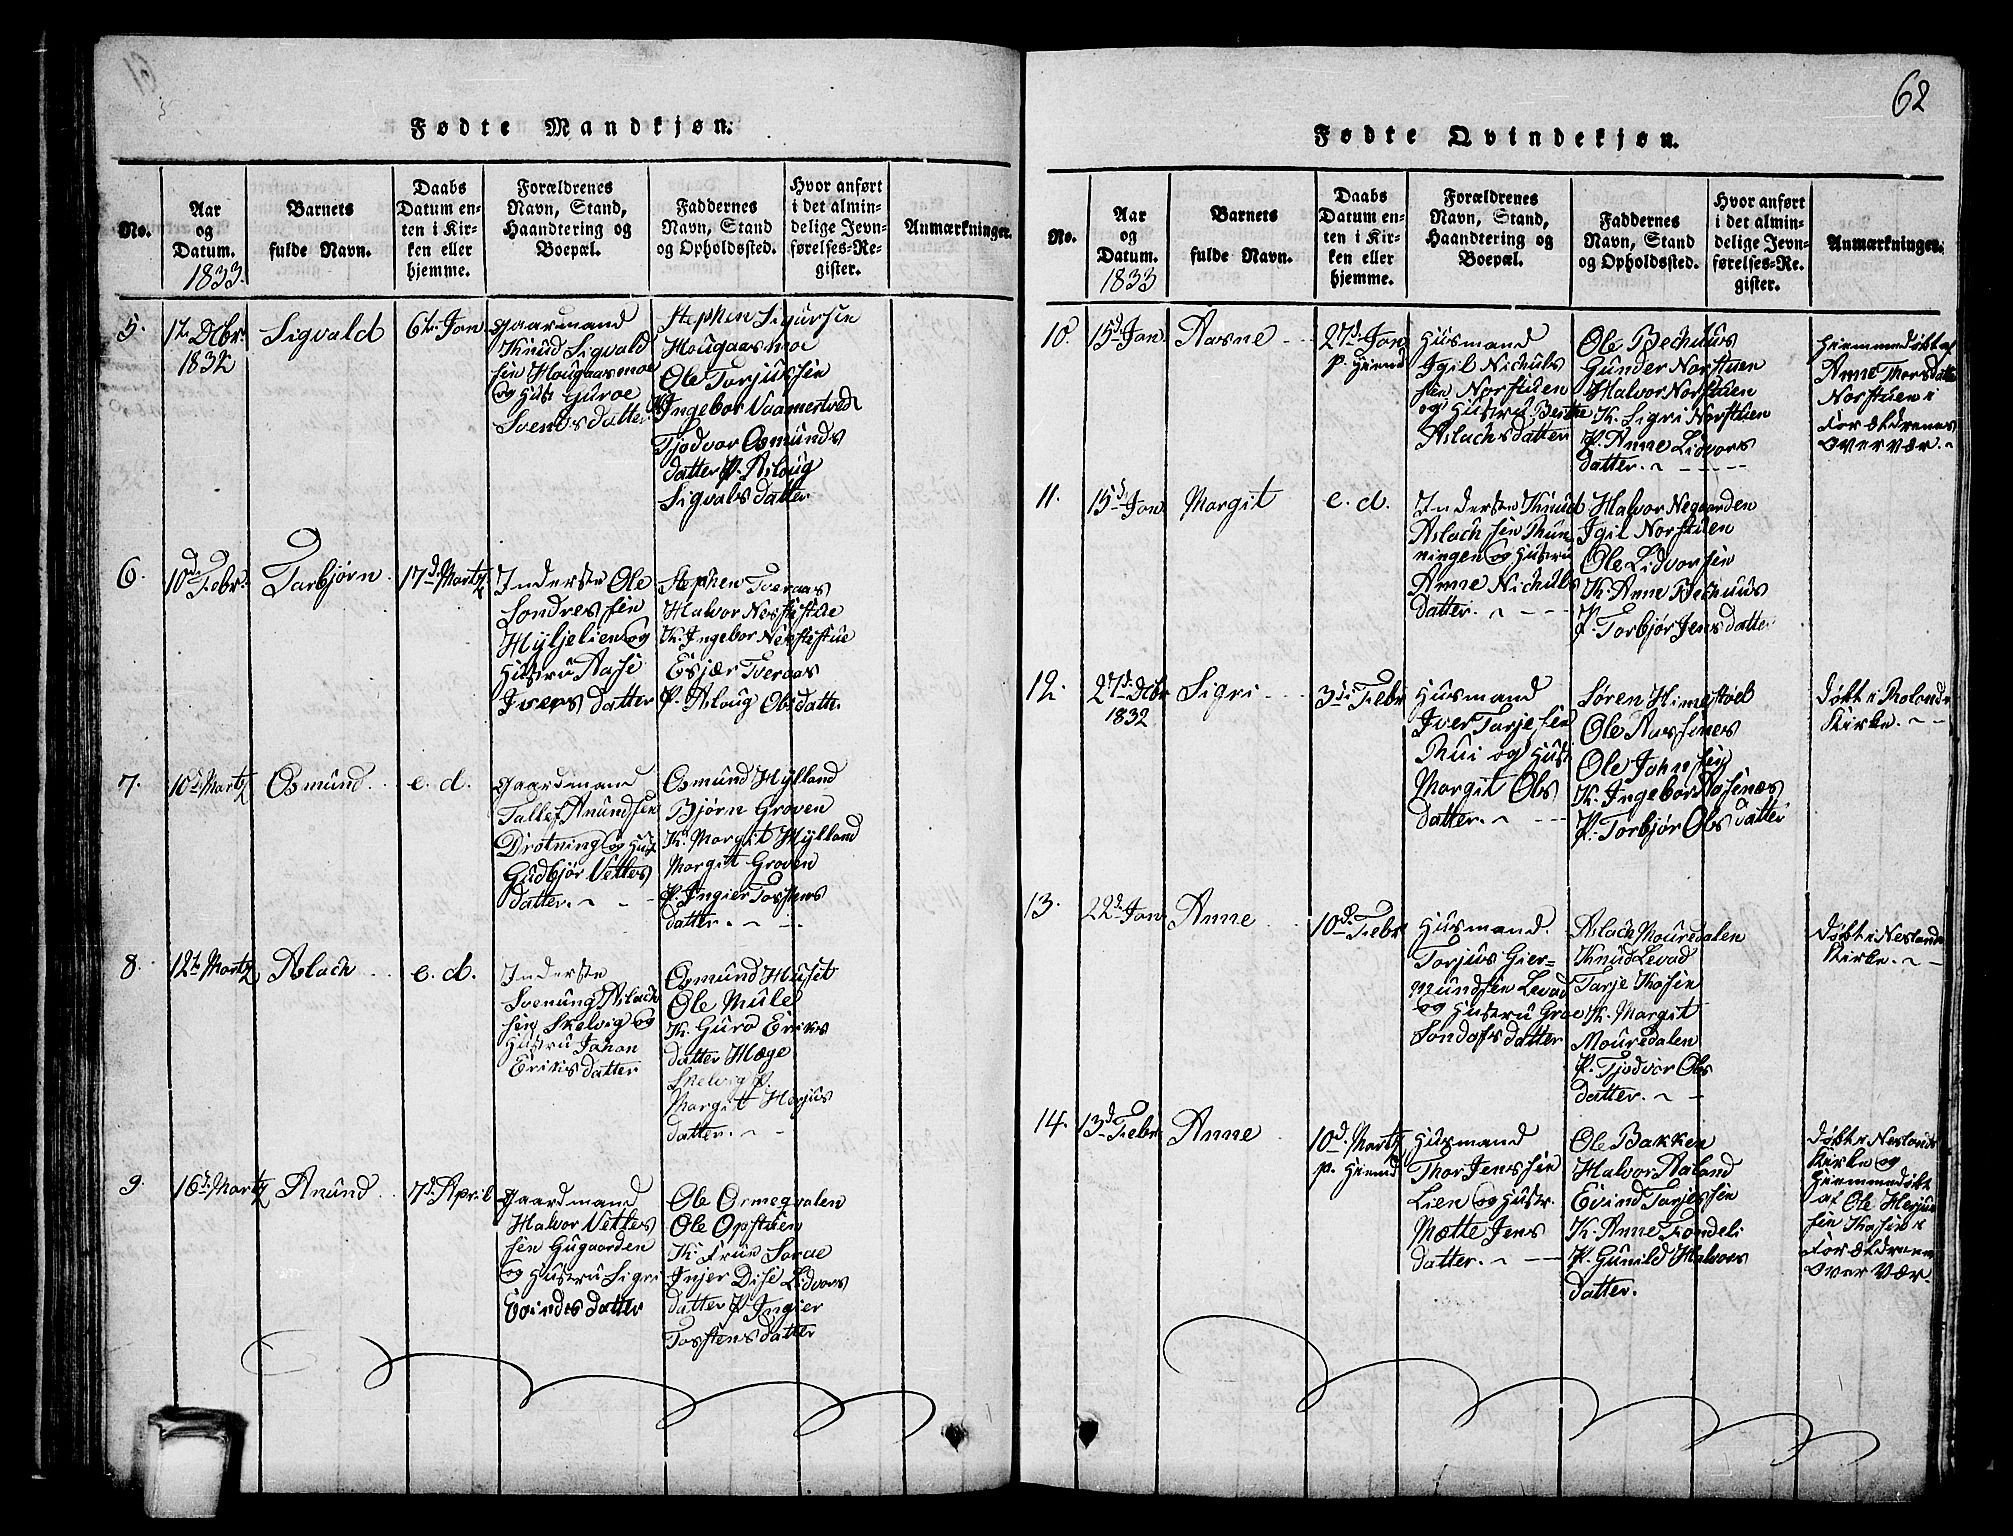 62
Fødte Mandkjøn.
No.
Aar
og
Datum.
1833.
Barnets
fulde Navn.
Daabs
Datum en-
ten i Kir-
ken eller
hjemme.
Forældrenes
Navn, Stand,
Haandtering og
Boepæl.
Faddernes
Navn, Stand
og Opholdssted.
Hvor anført
i det almin-
delige Jevn-
førelses-Re-
gister.
Anmærkninger.
5.
Dcbr.
1832
Sigvald
6te Jan.
Gaarmand
Knud Sigvald
sen Hougaasmoe
og Hust Guroe
Svends datter
Stephen Sigursen
Hougaasmoe
Ole Torjussen
Ingebor Vaamertved
Tjodvor Osmunds
datter P. Asloug
Sigvals datter
6.
10d Febr.
Torbjørn
17d Martz
Inderste Ole
Sondressen
Hyljelien og
Hustru Aase
Ivers datter
Stephen Tveraas
Halvor Nerstistue
K. Ingebor Nerstistue
Esjær Tveraas
P. Asloug Olsdatte.
7.
10d Martz
Osmund
e. d.
Gaardmand
Tallef Anundsen
Drotning og Hust
Gudbjør Vetles
datter.
Osmund Hylland
Bjørn Groven
K. Margit Hylland
Margit Groven
P. Ingier Tostens
datter.
8.
12te Martz
Aslach
e. d.
Inderste
Svenung Aslach
sen Skelvig og
Hustru Johan
Eriks datter
Osmund Huset
Ole Mule
K. Guro Eriks
datter Hæge
Skelvig P.
Margit Herjus
datter.
9.
16d Martz
Anund
7d April
Gaardmand
Halvor Vetles
sen Gugaarden
og Hustru Sigri
Evinds datter
Ole Ormegvalen
Ole Opstuen
K. Frue Sorae
Injer Dise Lidvors
datter P. Ingier
Tostens datter
Fødte Qvindekjøn.
No.
Aar
og
Datum.
1833
Barnets
fulde Navn.
Daabs
Datum en-
ten i Kir-
ken eller
hjemme.
Forældrenes
Navn, Stand,
Haandtering og
Boepæl.
Faddernes
Navn, Stand
og Opholdssted.
Hvor anført
i det almin-
delige Jevn-
førelses-Re-
gister.
Anmærkninger.
10.
15d Jan
Aasne
27d Jan
p. Hiemd
Husmand
Igil Nichuls
sen Norstuen
og Hustru Berthe
Aslachs datter
Ole Bechuus
Gunder Norstuen
Halvor Norstuen
K. Sigri Norstuen
P. Anne Lidvors
datter.
Hiemmedøbt af
Anne Thorsdatte
Norstuen i
Forældrenes
Overvær.
11.
15d Jan
Margit
e. d.
Inderste Knud
Aslach sen Thun
ningen og Hustru
Anne Nichuls
datter.
Halvor Negaarden
Igil Norstuen
Ole Lidvorsen
K. Anne Bechuus
P. Torbjør Jensdatter
12.
27d Dcbr
1832
Sigri
3d Febr
Husmand
Iver Tarjesen
Thui og Hust
Margit Ols
datter.
Søren Himestvel
Ole Aassenes
Ole Johnsen
K. Ingebor Aasenæs
P. Torbjør Ols datter
Døbt i
Kirke.
13.
22d Jan
Anne
10d Febr
Husmand.
Torjus Gier-
mundsen Levad
og Hustru Groe
Sondofs datter
Aslach Mouredalen
Knud Levad
Tarje Kosin
K. Margit
Mouredalen
P. Tjodvor Ols
datter.
Døbt i Neslands
Kirke.
14.
13d Febr
Anne
10d. Martz
p. Hiemd
Husmand
Thor Jenssen
Lien og Hustr.
Mætte Jens
datter.
Ole Bakken
Halvor Aaland
Evind Tarjessen
K. Anne Fondeli
P. Gunild Halvors
datter.
Døbt i Neslands
Kirke og
Hiemmedøbt
af Ole Herjus
sen Kosin i
Forældrenes
Overvær.